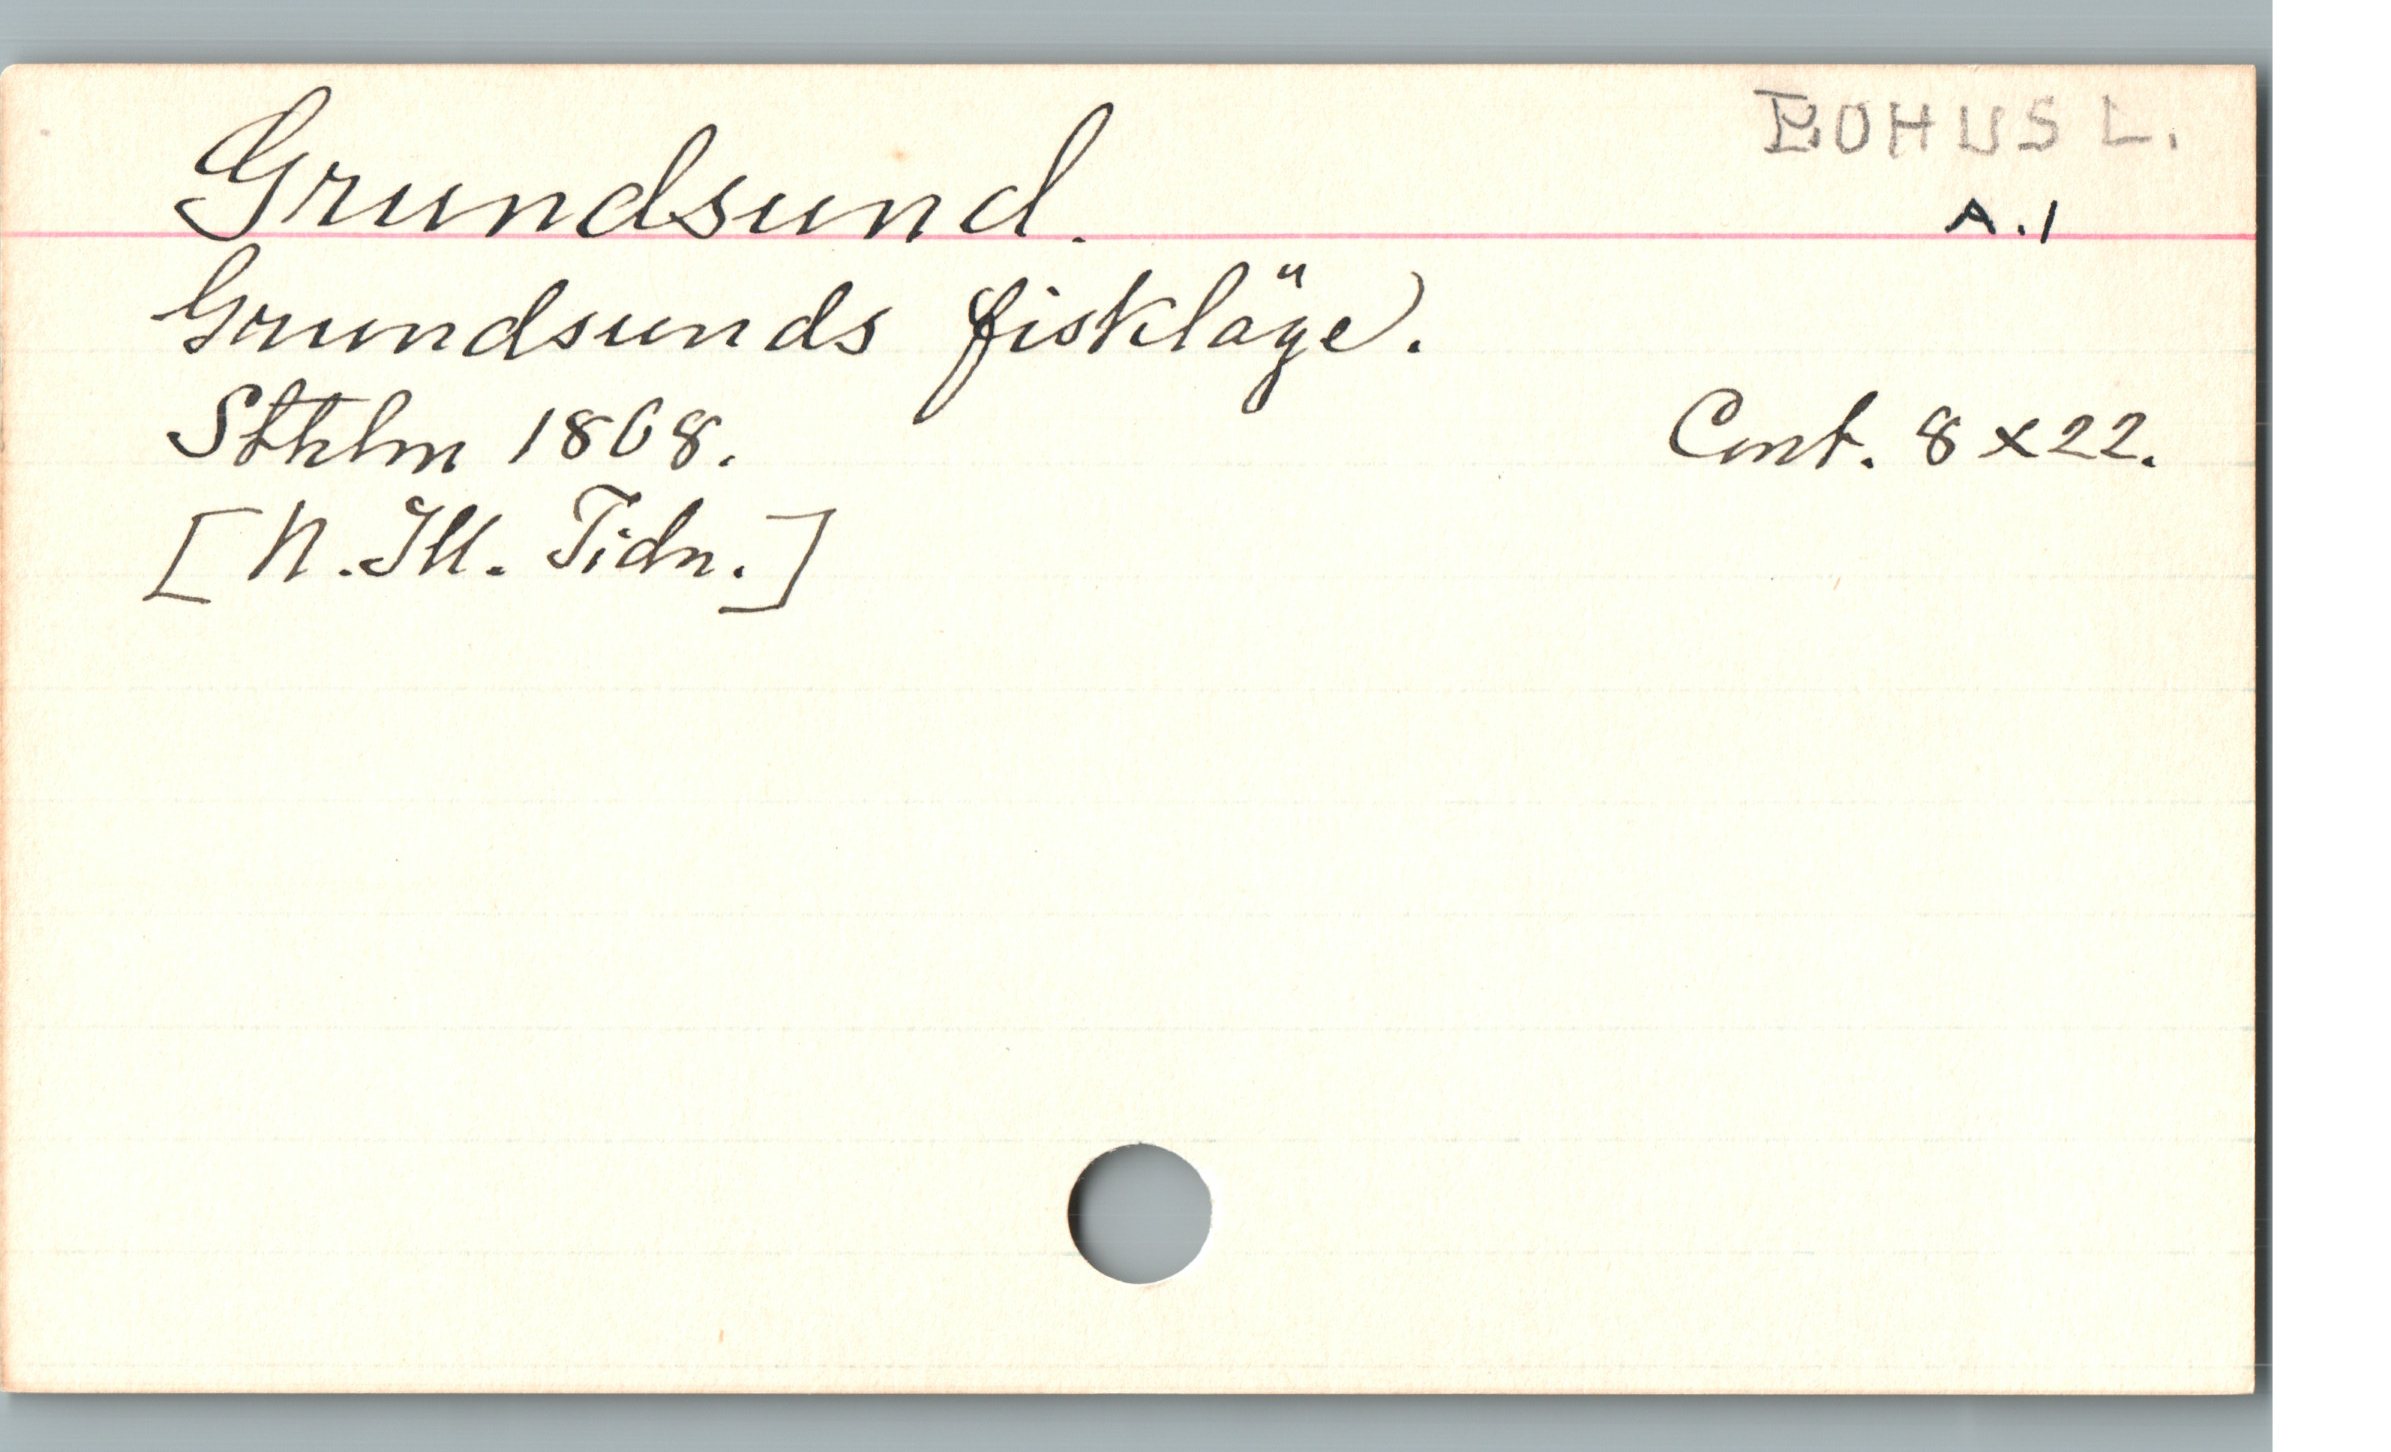 BOHUSL.
Grundsund.
A.1
Grundsunds fiskläge.
Sthlm 1868. Cont. 8 x 22.
[N. Ill. Tidn.]